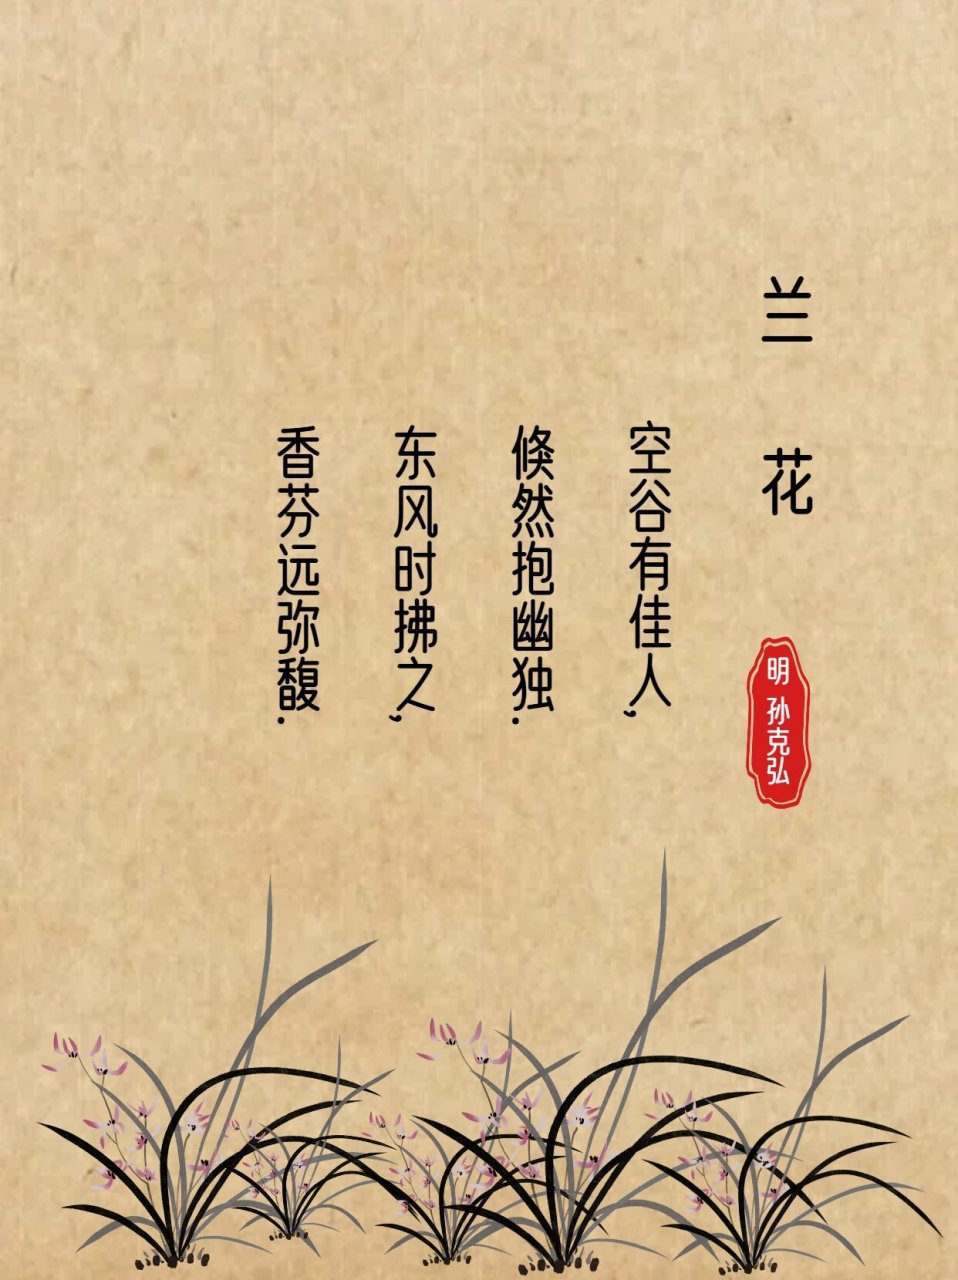 兰花
明 孙克弘
空谷有佳人,
倏然抱幽独.
东风时拂之,
香芬远弥馥.